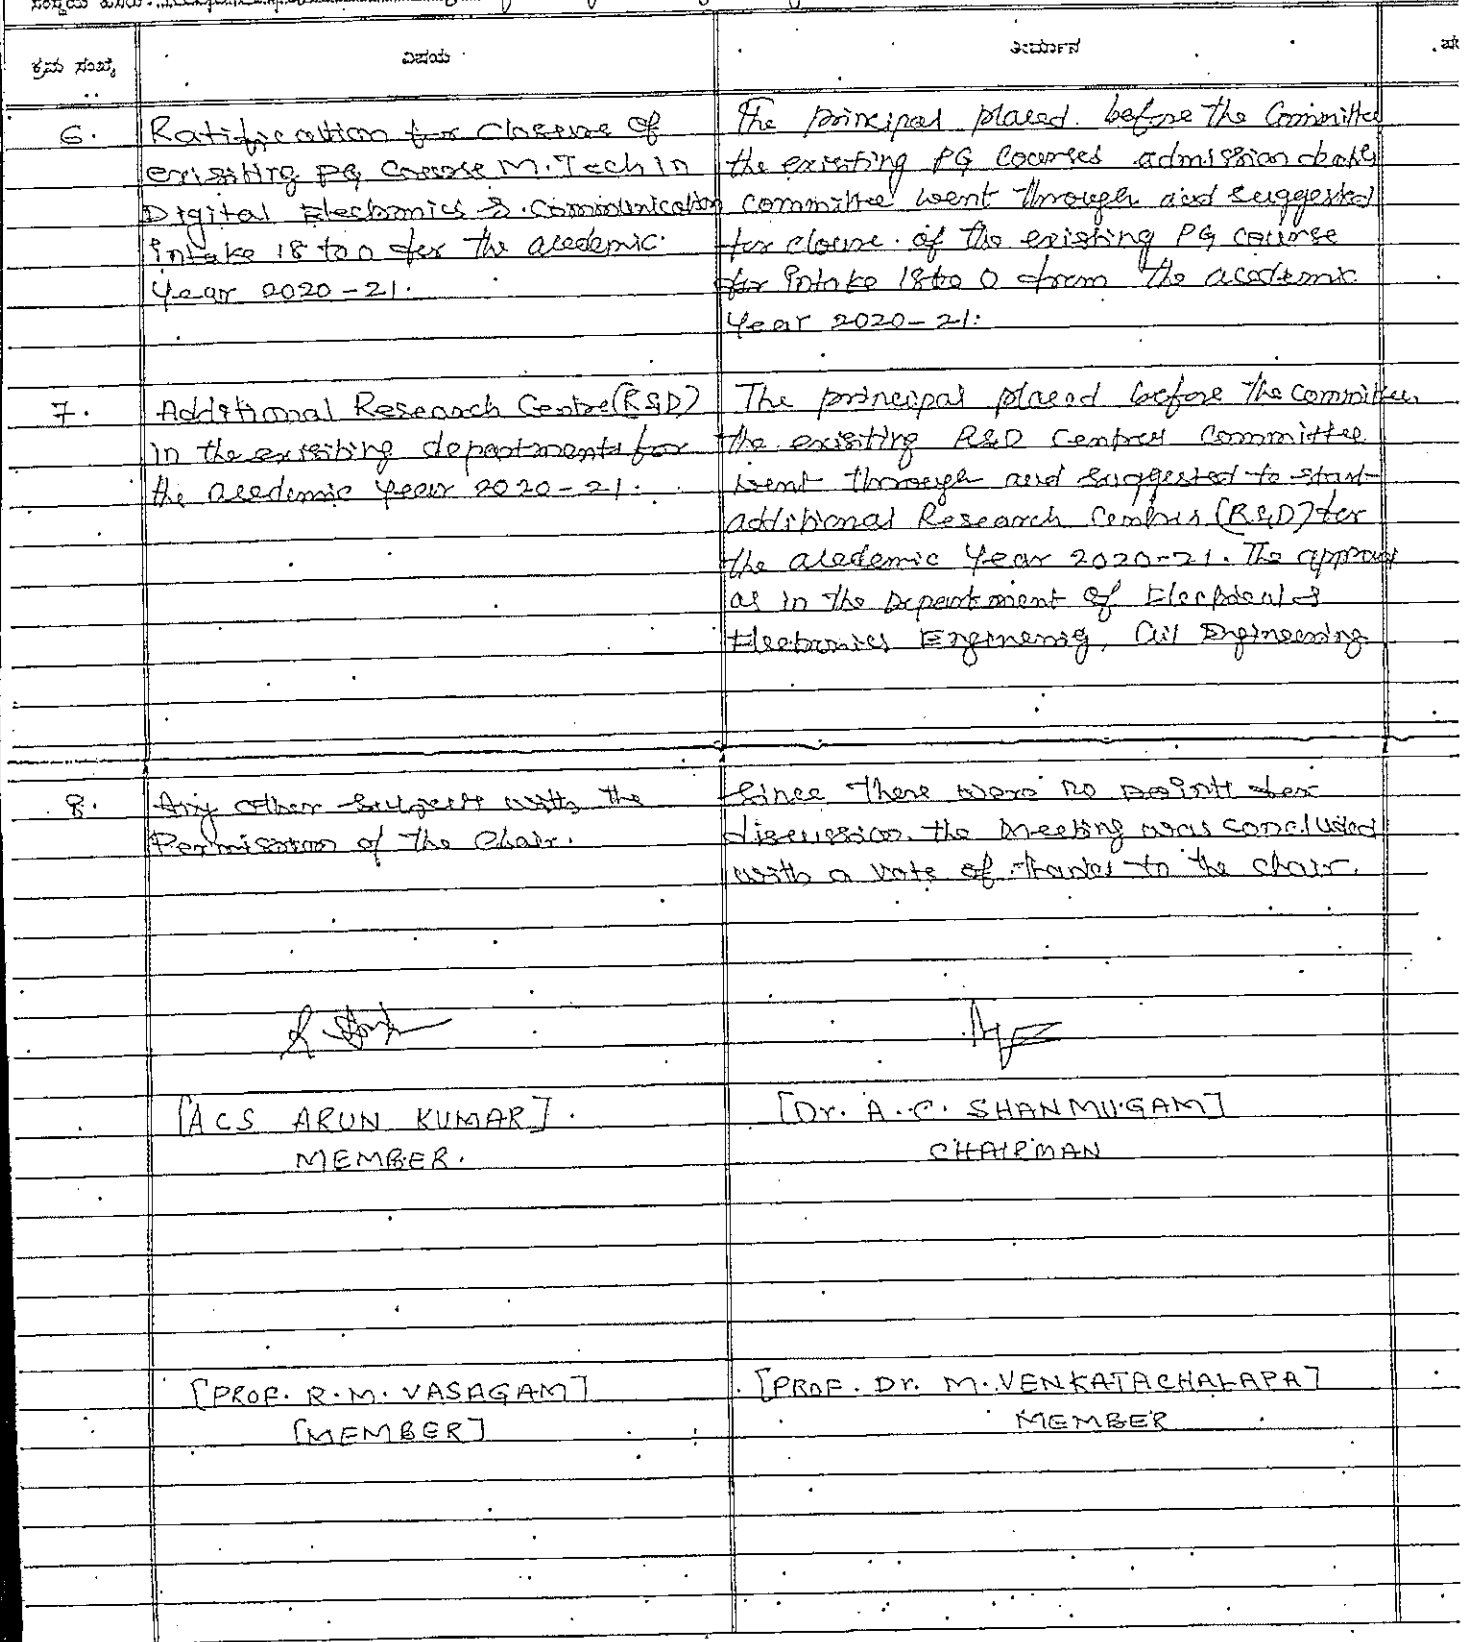 ಕ್ರಮ ಸಂಖ್ಯೆ
ವಿಷಯ
ತೀರ್ಮಾನ
6.
Ratification for closure of
existing PG Course M.Tech in
Digital Electronics & Communication
intake 18 to 0 for the academic
Year 2020-21.
The principal placed before the Committee
the existing PG Courses admission
committee went through and suggested
for closure of the existing PG course
for intake 18 to 0 from the academic
Year 2020-21.
7.
Additional Research Centre (R&D)
in the existing departments for
the academic year 2020-21.
The principal placed before the Committee
the existing R&D Centres Committee
went through and suggested to start
additional Research Centres (R&D) for
the academic Year 2020-21. The
as in the Department of Electrical &
Electronics Engineering, Civil Engineering
8.
Any other subjects with the
Permission of the Chair.
Since there were no points for
discussion the meeting was concluded
with a vote of thanks to the chair.
[ACS ARUN KUMAR].
MEMBER.
[Dr. A.C. SHANMUGAM]
CHAIRMAN
[PROF. R.M. VASAGAM]
[MEMBER]
[PROF. Dr. M. VENKATACHALAPA]
MEMBER